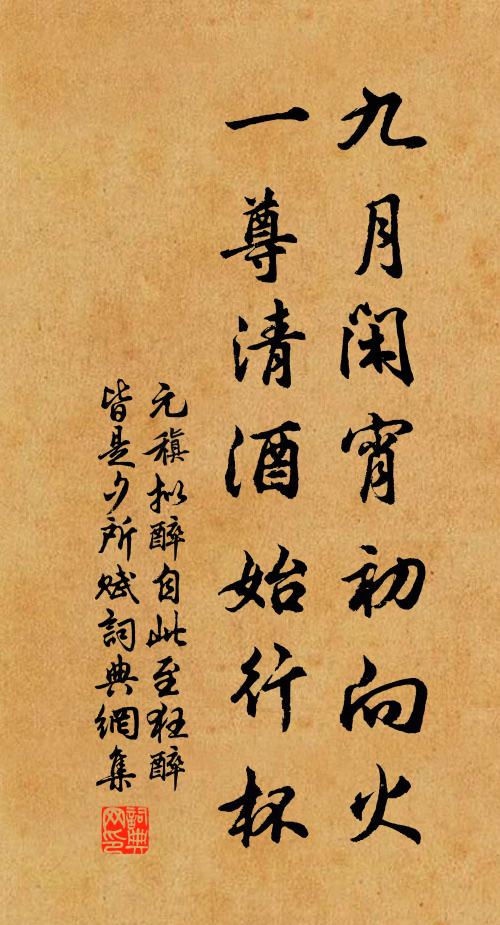 九月閑宵初向火
一尊清酒始行杯
元稹拟醉自此至狂醉
皆是夕所赋詞典網集
詞典網印